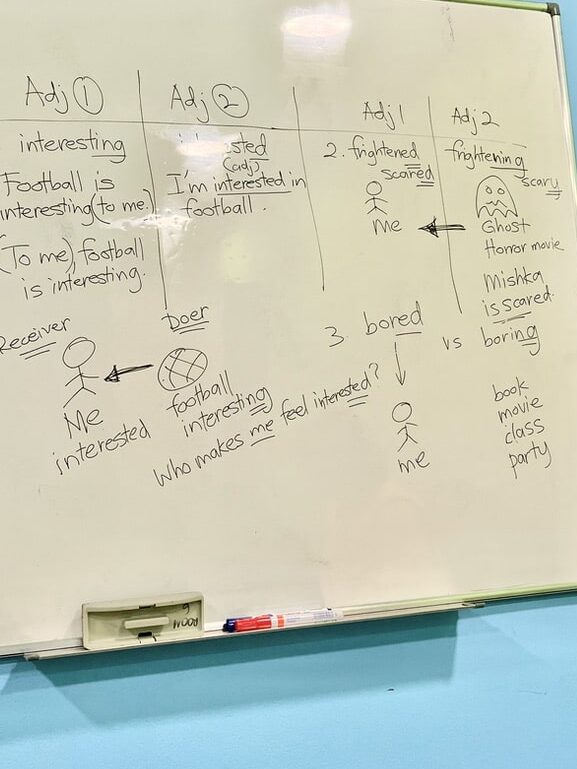 Adj 1
interesting
Football is
interesting (to me.)
(To me), football
is interesting.
Receiver
Me
interested
Adj 2
(adj)
I'm interested in
football.
Doer
football
interesting
Who makes me feel interested?
Adj 1
2. frightened
scared
me
3. bored
me
Adj 2
frightening
scary
Ghost
Horror movie
Mishka
is scared.
vs boring
book
movie
class
party
ROOM 6